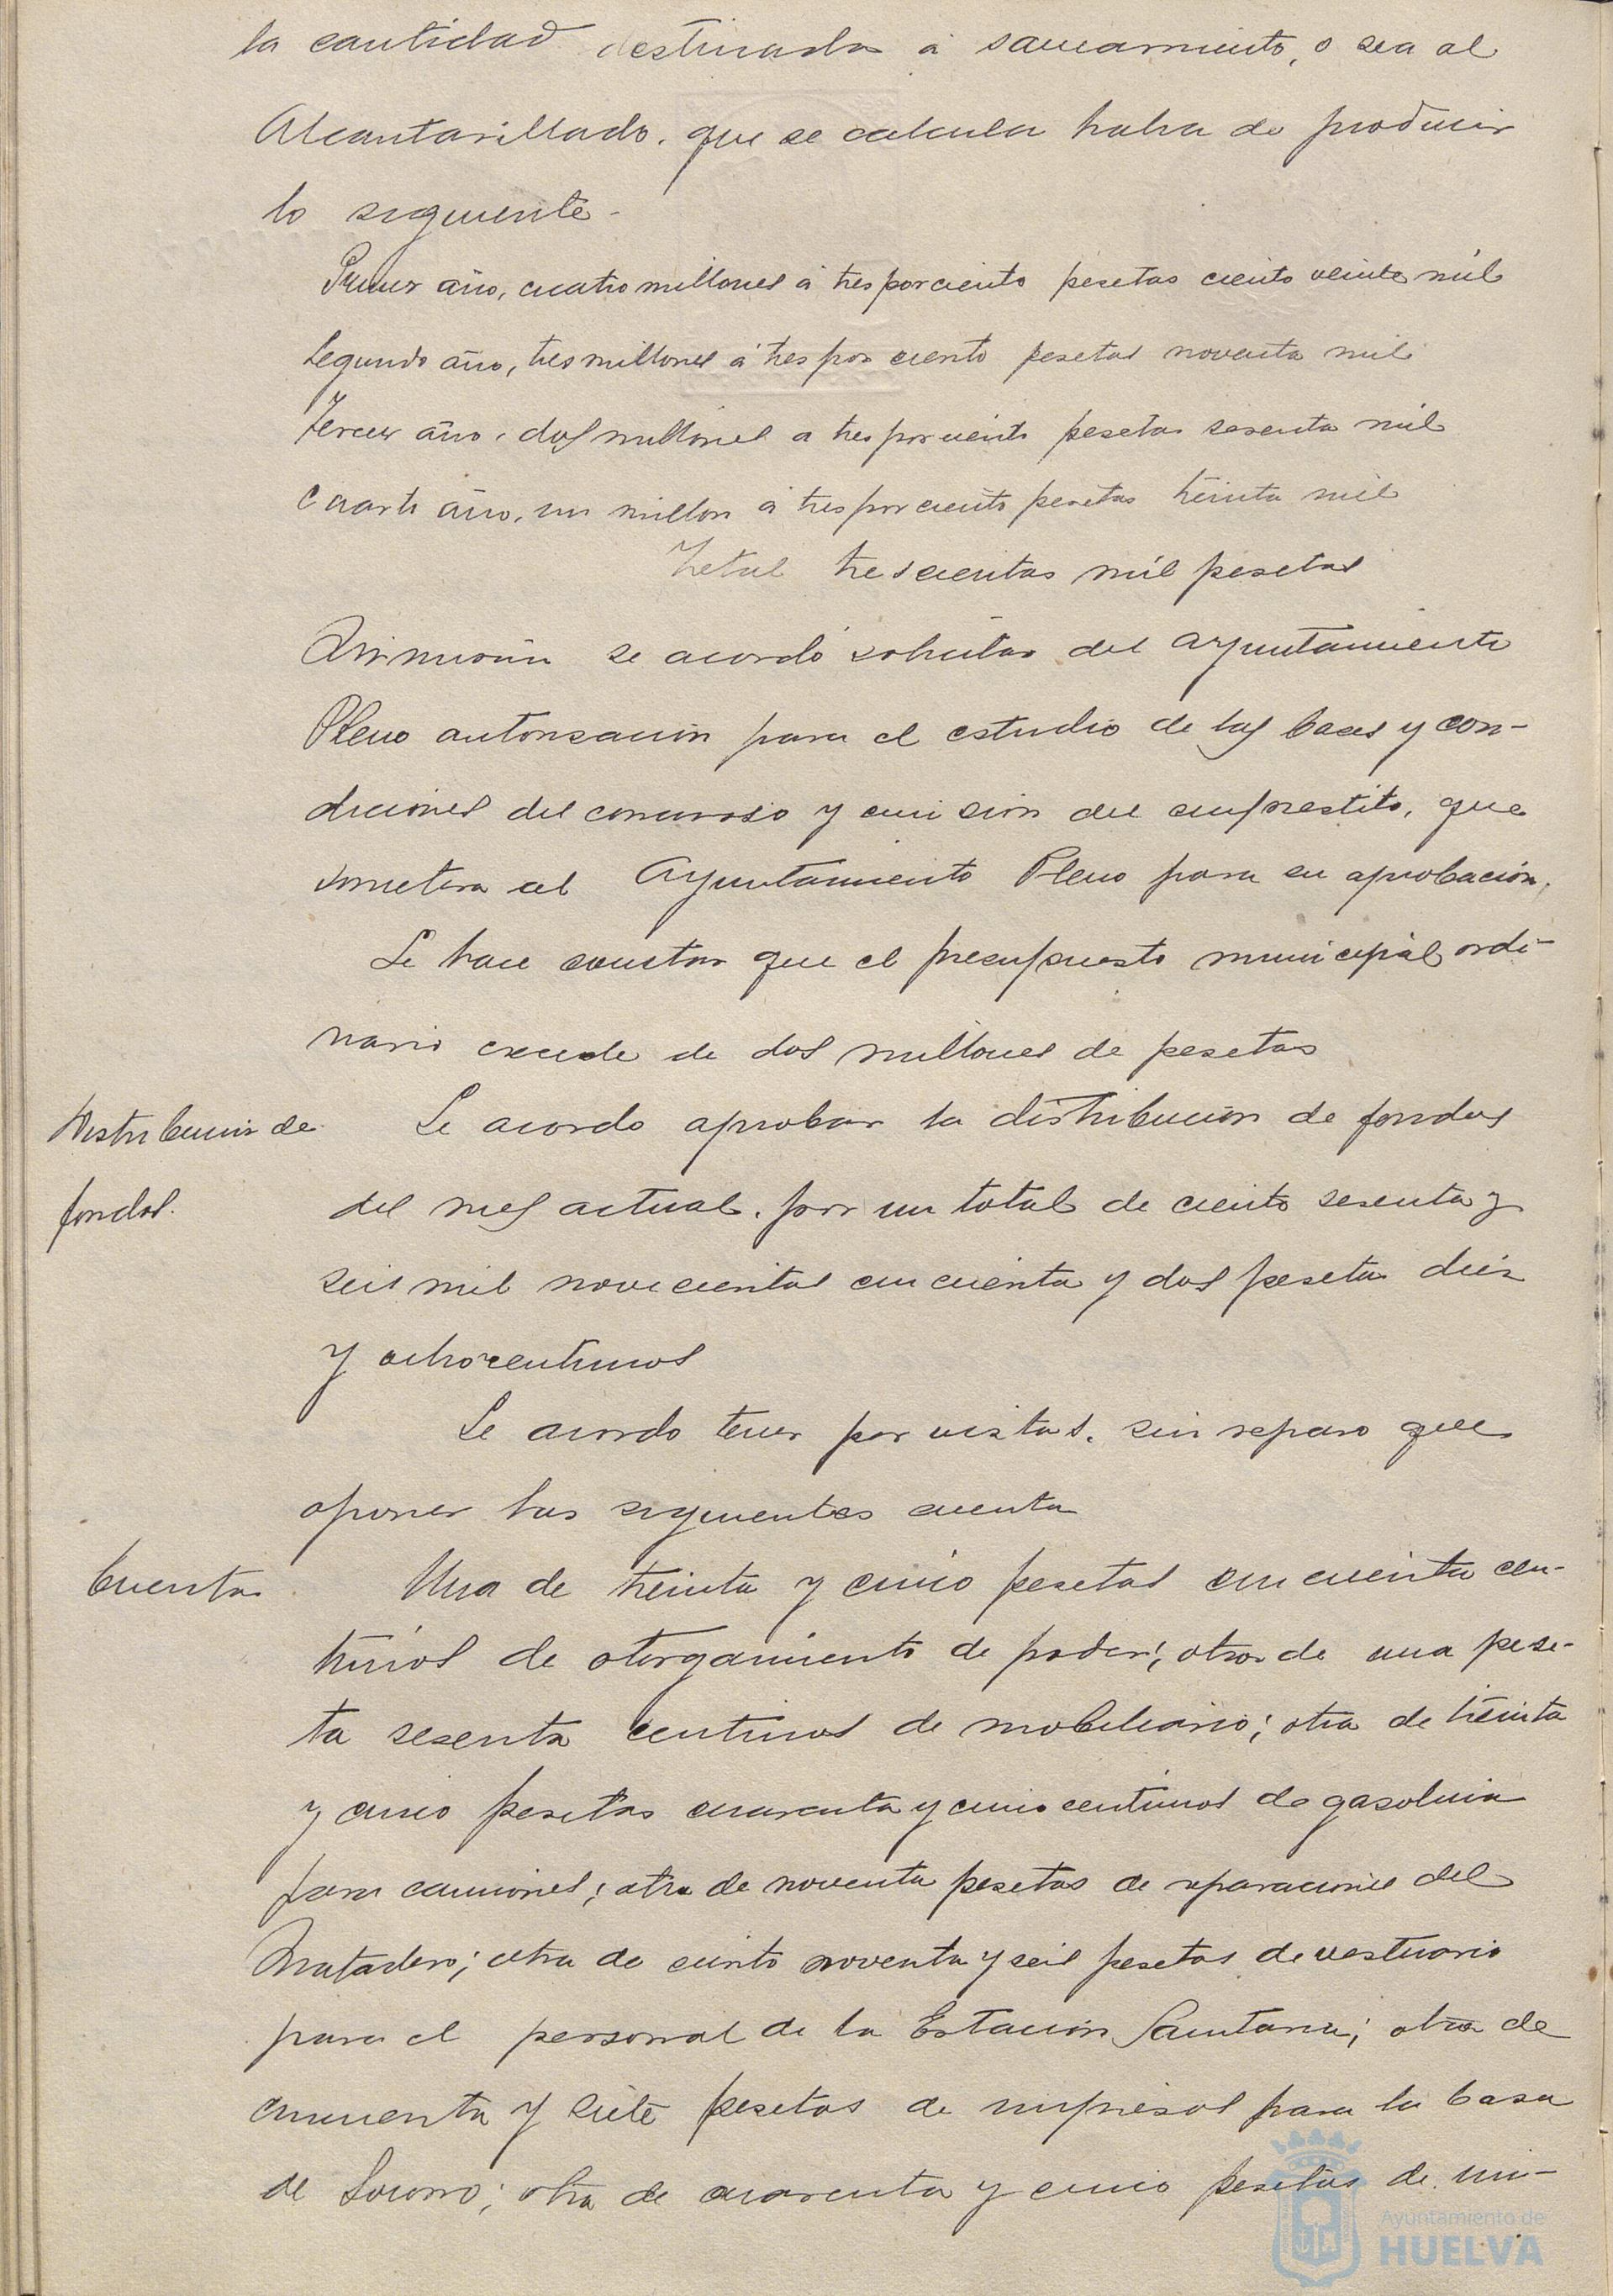 la cantidad destinada a saneamiento, o sea al
Alcantarillado, que se calcula habra de producir
lo siguiente-
Primer año, cuatro millones á tres por ciento pesetas ciento veinte mil
Segundo año, tres millones á tres por ciento pesetas noventa mil
Tercer año, dos millones a tres por ciento pesetas sesenta mil
Cuarto año, un millon á tres por ciento pesetas treinta mil
Total trescientas mil pesetas
Asimismo se acordó solicitar del Ayuntamiento
Pleno autorizacion para el estudio de las bases y con-
diciones del concurso y emision del emprestito, que
sometera al Ayuntamiento Pleno para su aprobacion.
Se hace constar que el presupuesto municipal ordi-
nario excede de dos millones de pesetas
Distribucion de
fondos.
Se acordo aprobar la distribucion de fondos
del mes actual, por un total de ciento sesenta y
seis mil novecientas cincuenta y dos peseta diez
y ocho centimos
Se acordo tener por vistas, sin reparo que
oponer las siguientes cuenta
Cuentas
Una de treinta y cinco pesetas cincuenta cen-
timos de otorgamiento de poder; otra de una pese-
ta sesenta centimos de mobiliario; otra de treinta
y cinco pesetas cuarenta y cinco centimos de gasolina
para camiones; otra de noventa pesetas de reparaciones del
Matadero; otra de ciento noventa y seis pesetas de vestuario
para el personal de la Estacion Sanitaria; otra de
cincuenta y siete pesetas de impresos para la Casa
de Socorro; otra de cuarenta y cinco pesetas de im-
Ayuntamiento de
HUELVA